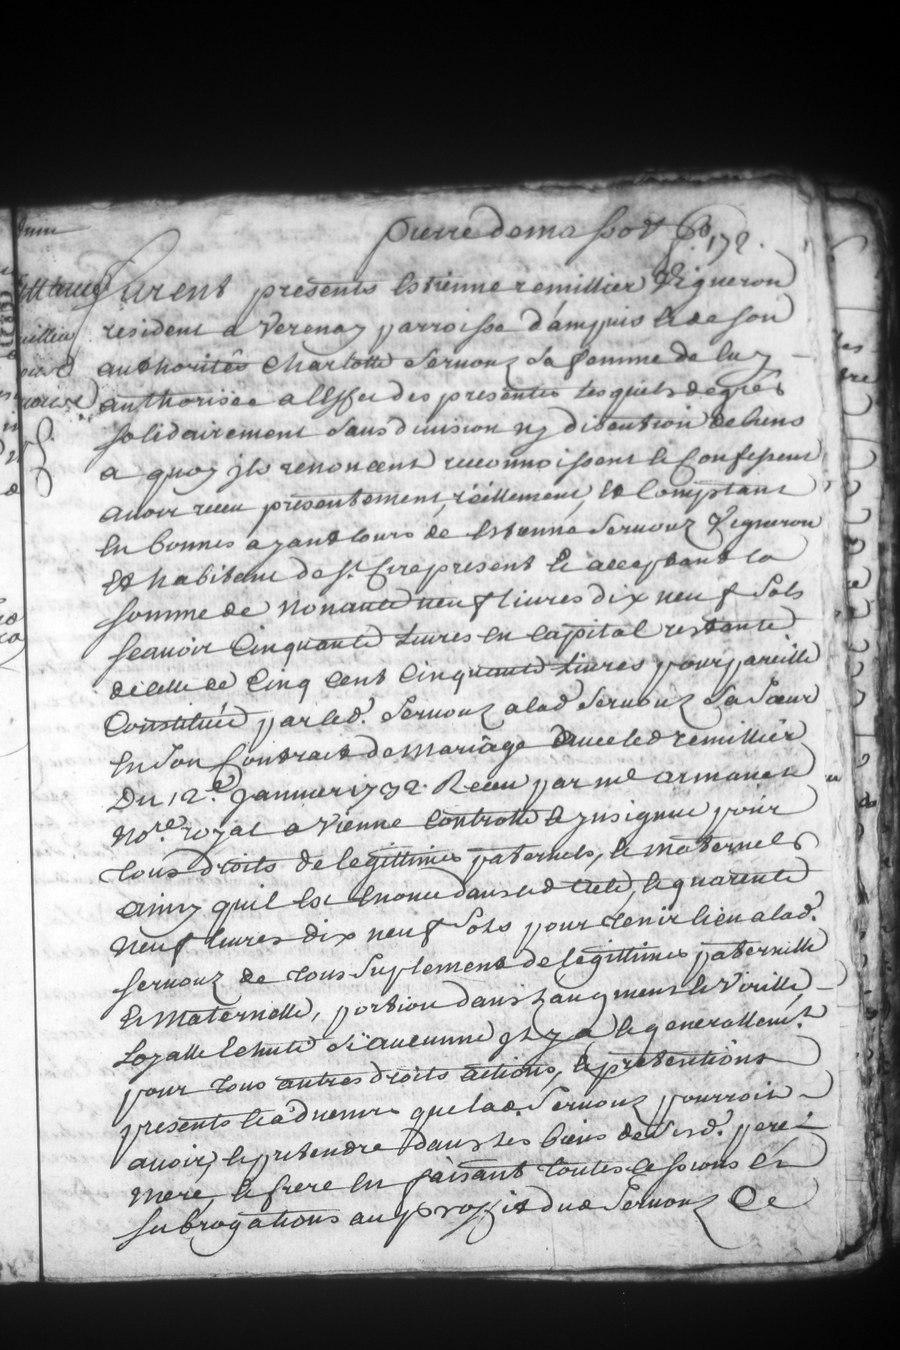 pierre demassot
f. 172.
furent presents Estienne remillier Vigneron
resident a Verenay parroisse d'ampuis et de son
authorités Charlotte Servonz sa femme de luy
authorisée a l'Effet des presentes lesquels de grés
solidairement sans division ny discution de biens
a quoy jls renoncent reconnoissent et Confessent
avoir receu présentement, réellement, et Comptant
En bonnes ayant cours de Estienne Servonz Vigneron
Et habitant de St. Cire present Et acceptant la
somme de nonante neuf livres dix neuf sols
scavoir Cinquante Livres en capital restante
de celle de Cinq Cent Cinquante Livres pour pareille
Constituée par led. Servonz a lad. Servonz sa sœur
En son Contract de Mariage avec led. remillier
Du 12e. Janvier 1732. Receu par me armanet
Nore. royal a Vienne Controllé et jnsignué pour
tous droits de legittimes paternels, et maternels
ainsy quil Est Enoncé dans led. acte, et quarente
neuf livres dix neuf sols pour tenir lieu a lad.
Servonz de tous suplement de legittimes paternelle
Et Maternelle, portion dans l'augment Et Virille
Loyalle Echute si aucunne jl y a, et generallemt.
pour tous autres droits actions, et prétentions
presents et a'd'venir que lad. Servonz pourroit
avoir, et pretendre dans les biens de sesd. pere
mere, et frere En faisant toutes cessions Et
subrogations au proffit dud. Servonz De